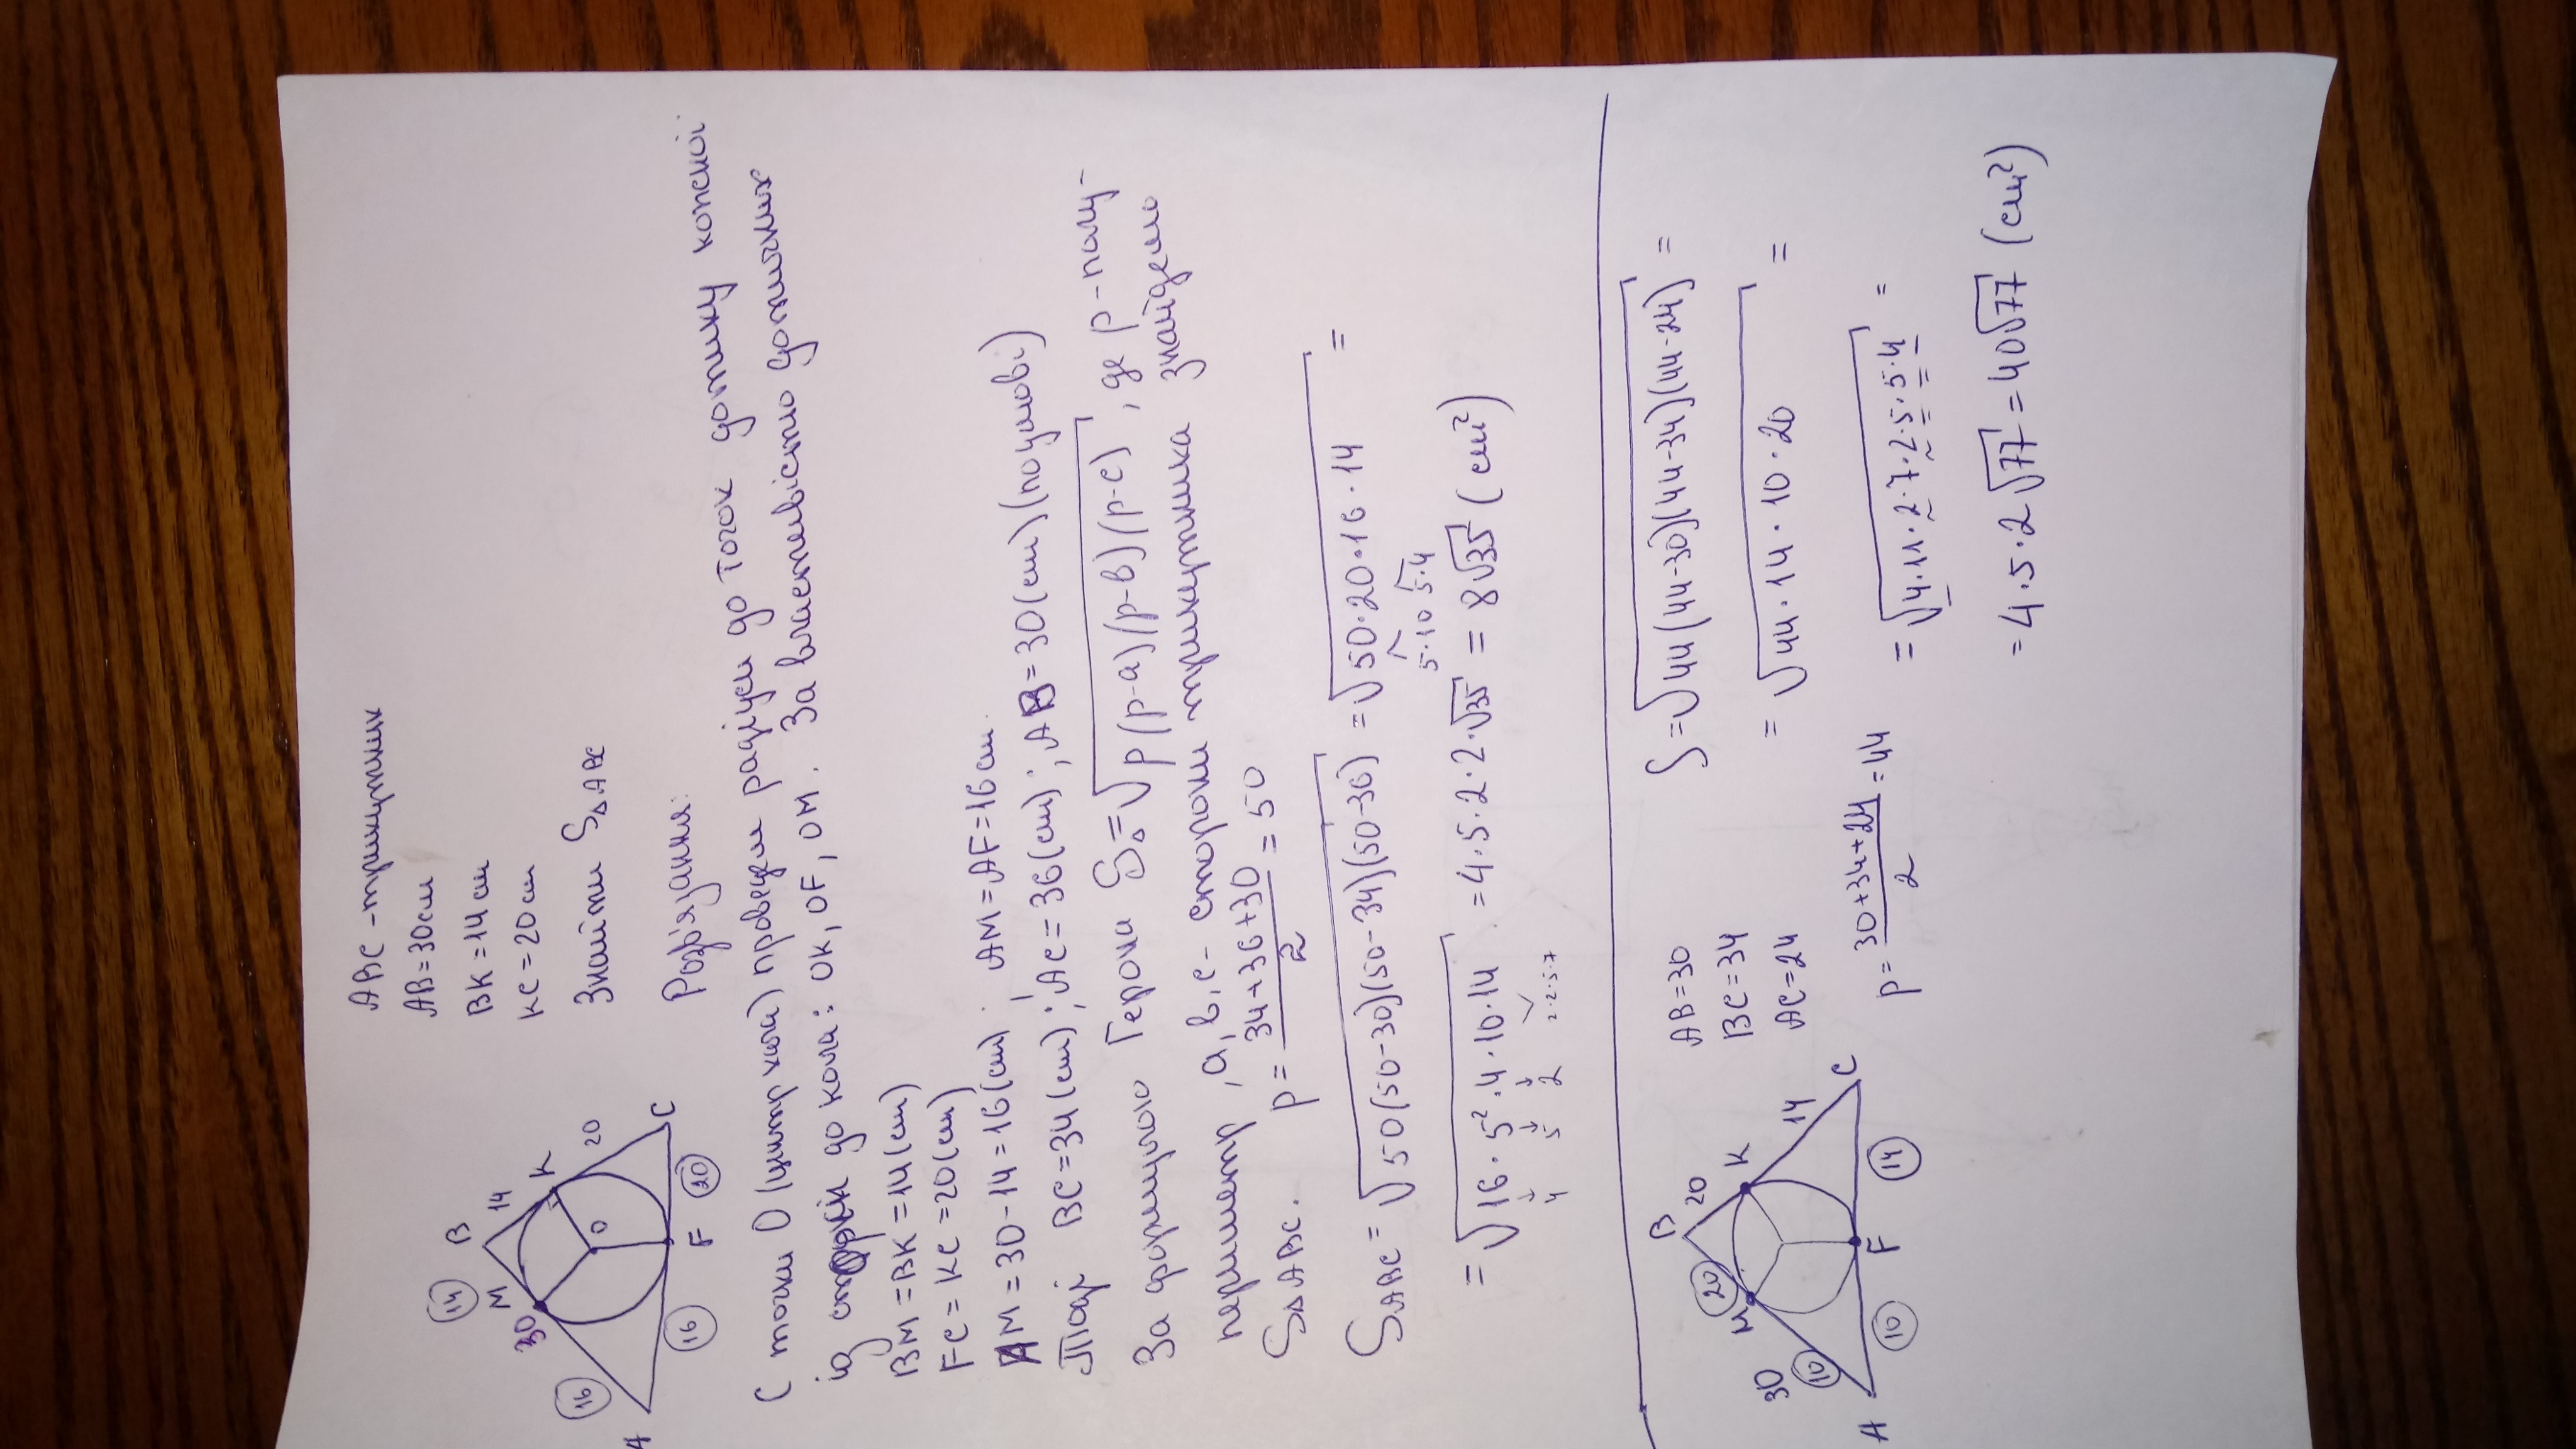 ABC - трикутник
AB = 30 см
BK = 14 см
KC = 20 см
Знайти S△ABC
14
B
14
M
30
K
20
16
O
A
16
F
20
C
Розв'язання:
С точки О (центр кола) проведем радіуси до точок дотику кожної
із сторін до кола: OK, OF, OM. За властивістю дотичних
BM = BK = 14 (см)
FC = KC = 20 (см)
AM = 30 - 14 = 16 (см); AM = AF = 16 см.
Тоді BC = 34 (см); AC = 36 (см); AB = 30 (см) (по умові)
За формулою Герона S△ = √p(p-a)(p-b)(p-c), де p - полу-
периметр, a, b, c - сторони трикутника знайдемо
S△ABC. p = (34+36+30)/2 = 50
S ABC = √50(50-30)(50-34)(50-36) = √50·20·16·14 =
5·10 5·4
= √16·5²·4·10·14 = 4·5·2·2·√35 = 8√35 (см²)
4 5 2 2·2·5·7
B
20
20
M
30
K
14
10
A
10
F
14
C
AB = 30
BC = 34
AC = 24
p = (30+34+24)/2 = 44
S = √44(44-30)(44-34)(44-24) =
= √44·14·10·20 =
= √4·11·2·7·2·5·5·4 =
= 4·5·2√77 = 40√77 (см²)